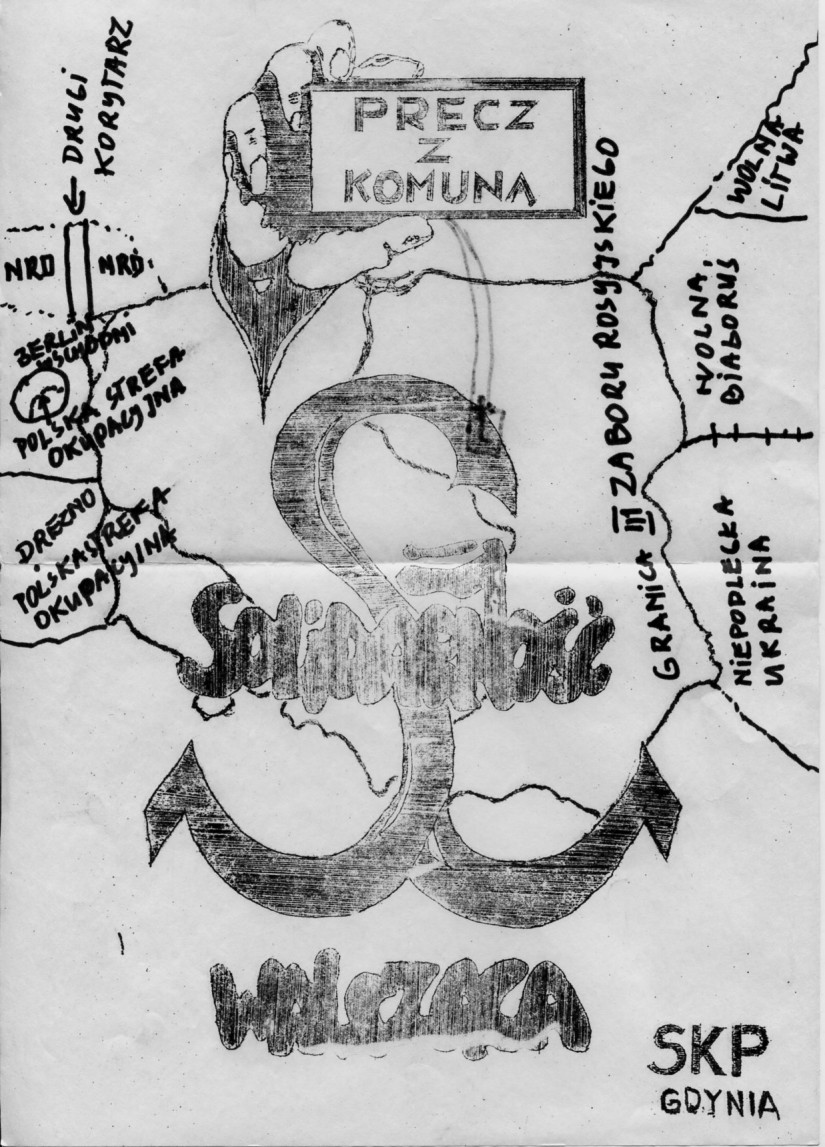 ← DRUGI
KORYTARZ
PRECZ
Z
KOMUNĄ
WOLNA
LITWA
NRD
NRD
BERLIN
WSCHODNI
POLSKA STREFA
OKUPACYJNA
DREZNO
POLSKA STREFA
OKUPACYJNA
GRANICA III ZABORU ROSYJSKIEGO
WOLNA
BIAŁORUŚ
NIEPODLEGŁA
UKRAINA
Solidarność
WALCZĄCA
SKP
GDYNIA